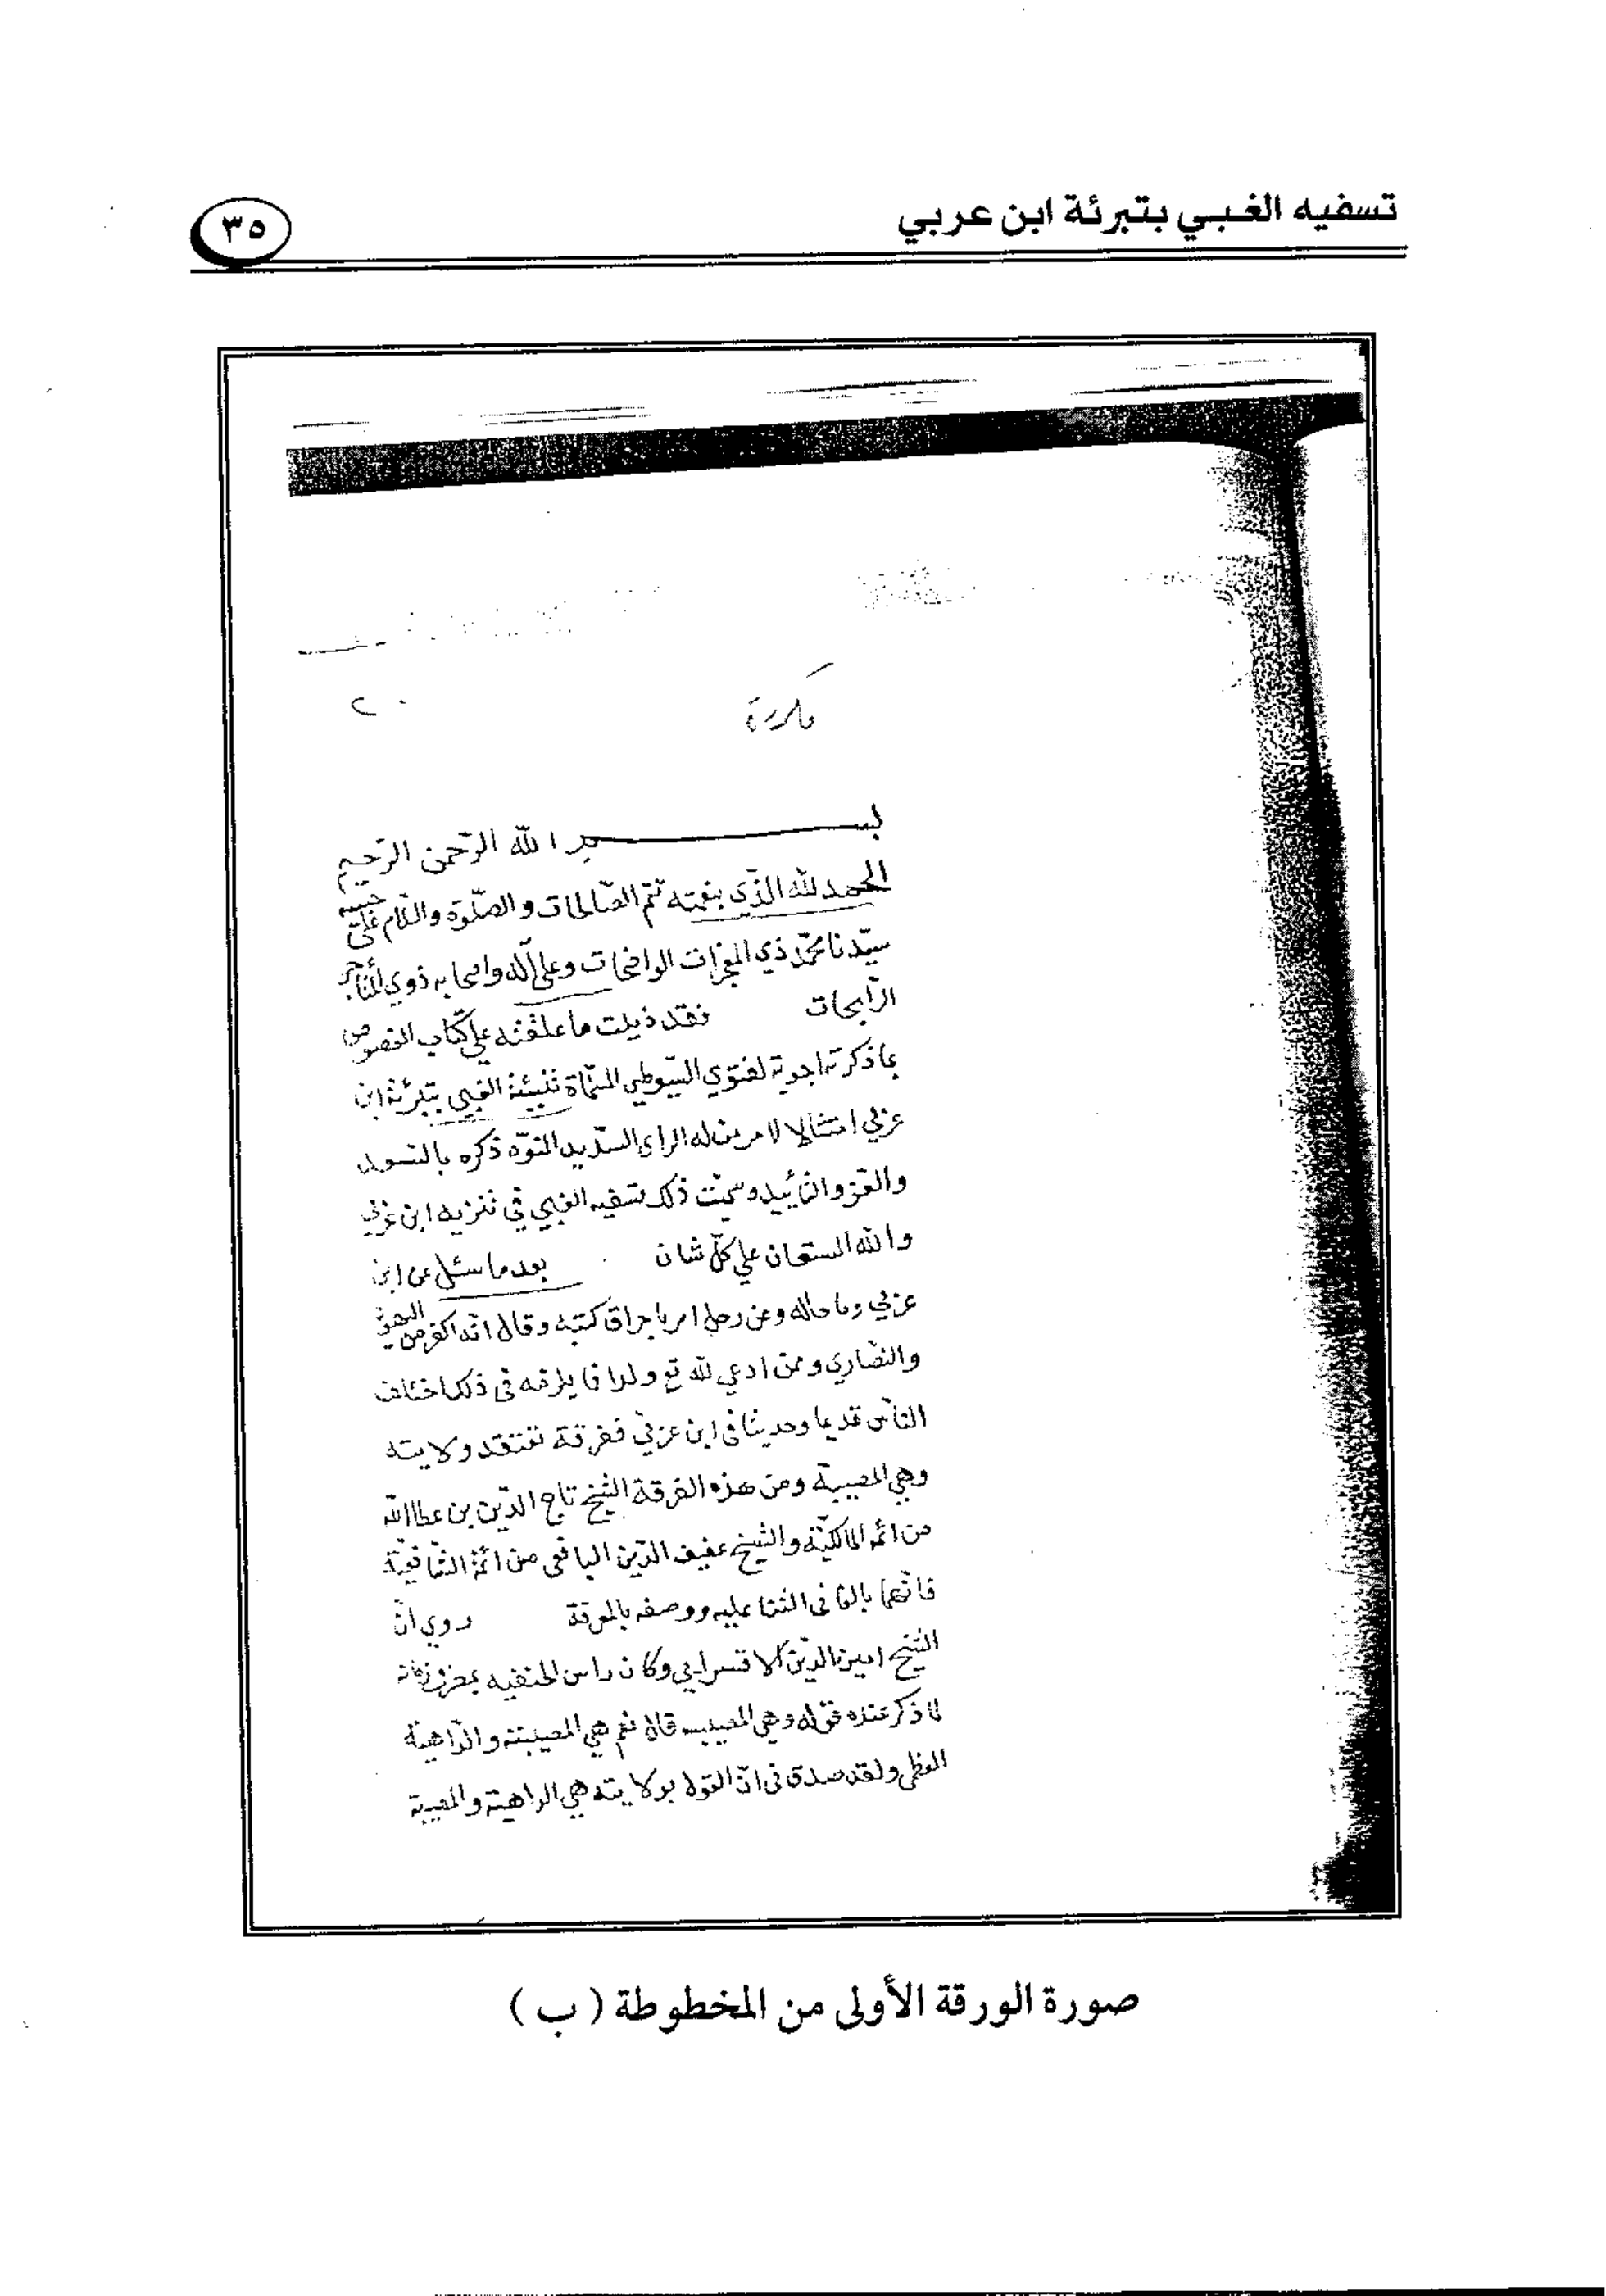 تسفيه الغبي بتبرئة ابن عربي
٣٥
مكررة
٢٠
بسم الله الرحمن الرحيم
الحمد لله الذي بنعمته تتم الصّالحات والصّلوة والسّلام على حبيبه
سيّدنا محمّد ذي المعجزات الواضحات وعلى آله واصحابه ذوي المتاجر
الرّابحات فقد ذيلت ما علقته علي كتاب الفصوص
بما ذكرته اجوبة لفتوي السّيوطي المسمّاة تنبئة الغبي بتبرئة ابن
عربي امتثالا لامر من له الراى السّديد المنوّه ذكره بالتسويد
والعزّ والتأييد وسمّيت ذلك تسفيه الغبي في تنزيه ابن عربي
والله المستعان علي كلّ شان بعد ما سئل عن ابن
عربي وما حاله وعن رجل امر باحراق كتبه وقال انّه اكفر من اليهود
والنصّاري وممن ادعي لله تع ولدا فا يلزمه فى ذلك اختلف
النّاس قديما وحديثا فى ابن عربي ففرقة تعتقد ولايته
وهي المصيبة ومن هذه الفرقة الشّيخ تاج الدّين بن عطا الله
من ائمّة المالكيّة والشّيخ عفيف الدّين اليافعى من ائمّة الشّافعيّة
فانّهما بالغا فى الثنا عليه ووصفه بالمعرفة روي انّ
الشّيخ امين الدّين الاقسرايي وكان راس الحنفيه بمصر فى زمانه
لمّا ذكر عنده قوله وهي المصيبة قال نعم هي المصيبتة والدّاهية
العظمي ولقد صدق فى انّ القول بولايته هي الداهية والمصيبة
صورة الورقة الأولى من المخطوطة ( ب )